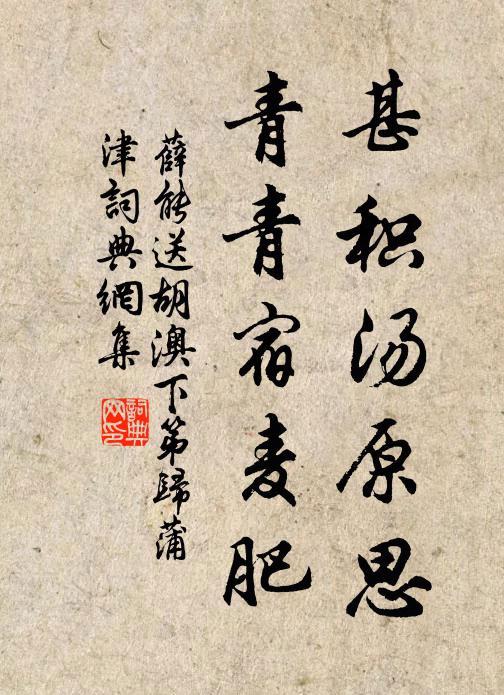 甚积汤原思
青青宿麦肥
薛能送胡澳下第歸蒲
津詞典網集
詞典
网印